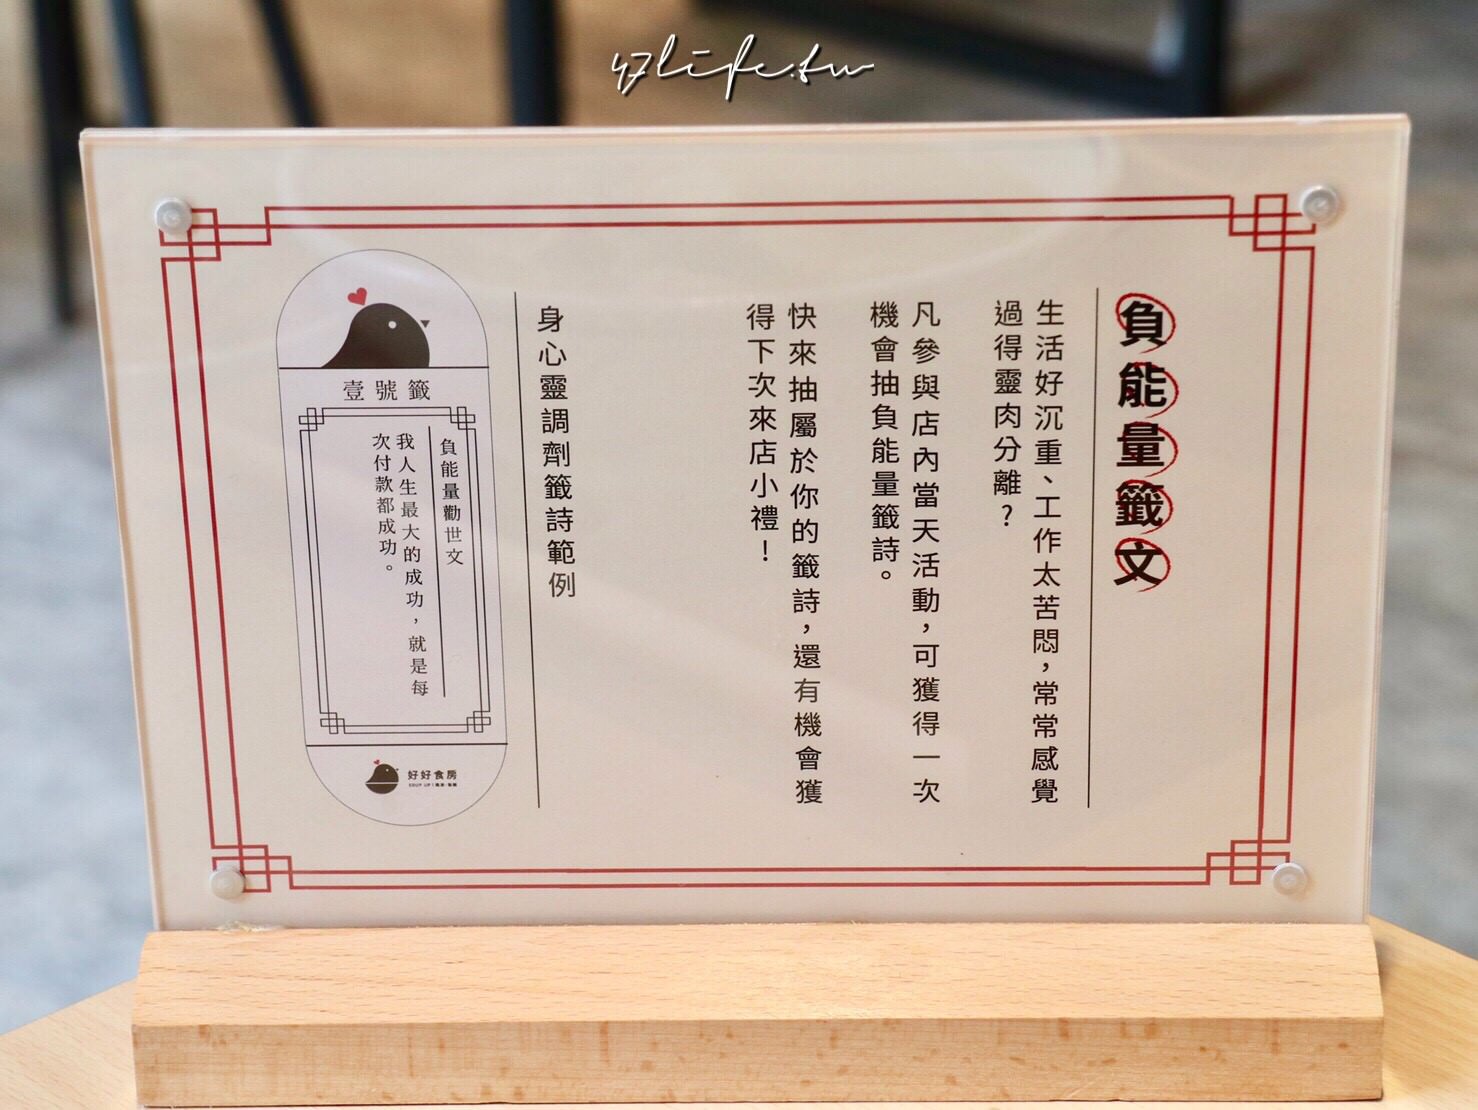 47life.tw
負能量籤文
生活好沉重、工作太苦悶，常常感覺
過得靈肉分離?
凡參與店內當天活動，可獲得一次
機會抽負能量籤詩。
快來抽屬於你的籤詩，還有機會獲
得下次來店小禮！
身心靈調劑籤詩範例
壹號籤
負能量勸世文
我人生最大的成功，就是每
次付款都成功。
好好食房